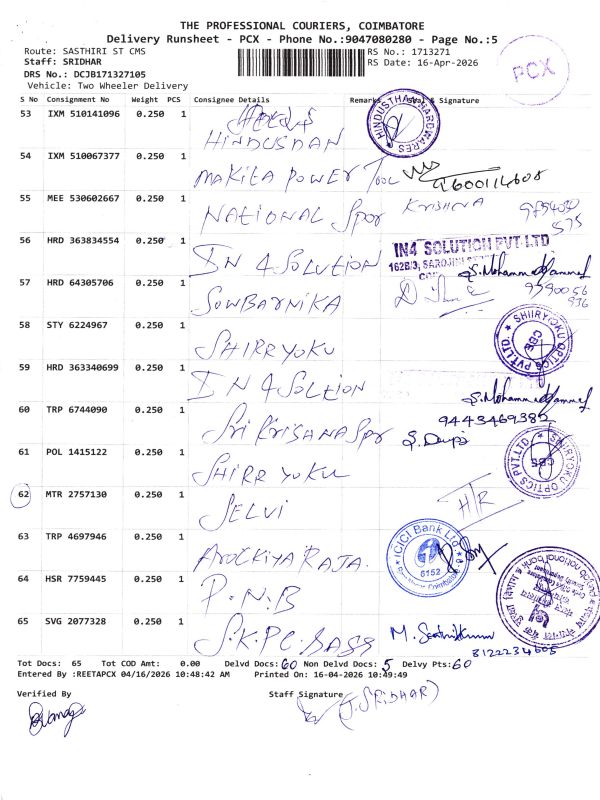 THE PROFESSIONAL COURIERS, COIMBATORE
Delivery Runsheet - PCX - Phone No.:9047080280 - Page No.:5
Route: SASTHIRI ST CMS
RS No.: 1713271
Staff: SRIDHAR
RS Date: 16-Apr-2026
DRS No.: DCJB171327105
Vehicle: Two Wheeler Delivery
PCX
S No Consignment No Weight PCS Consignee Details Remarks Seal & Signature
53 IXM 510141096 0.250 1 HINDUSDAN
HINDUSTHAN HARDWARES
54 IXM 510067377 0.250 1 MAKITA POWER TOOL 9600114608
55 MEE 530602667 0.250 1 NATIONAL Spor KRISHNA
56 HRD 363834554 0.250 1 IN 4 SOLUTION
IN4 SOLUTION PVT LTD
162B/3, SAROJINI
S. Mohammed
57 HRD 64305706 0.250 1 SOWBARNIKA
9590056
936
58 STY 6224967 0.250 1 SHIRRYOKU
SHIIRYOKU OPTICS PVT.LTD. CBE
59 HRD 363340699 0.250 1 IN 4 SOLTION
S. Mohammed
9443469382
60 TRP 6744090 0.250 1 Sri KRISHANA Spor
61 POL 1415122 0.250 1 SHIRR YOKU
SHIIRYOKU OPTICS PVT.LTD
62 MTR 2757130 0.250 1 SELVI HTR
63 TRP 4697946 0.250 1 AROCKIYA RAJA.
ICICI Bank Ltd
6152
64 HSR 7759445 0.250 1 P.N.B
punjab national bank
65 SVG 2077328 0.250 1 S.K.P.C. SASS
8122234605
Tot Docs: 65 Tot COD Amt: 0.00 Delvd Docs: 60 Non Delvd Docs: 5 Delvy Pts: 60
Entered By :REETAPCX 04/16/2026 10:48:42 AM Printed On: 16-04-2026 10:49:49
Verified By
Staff Signature
(J. SRIDHAR)